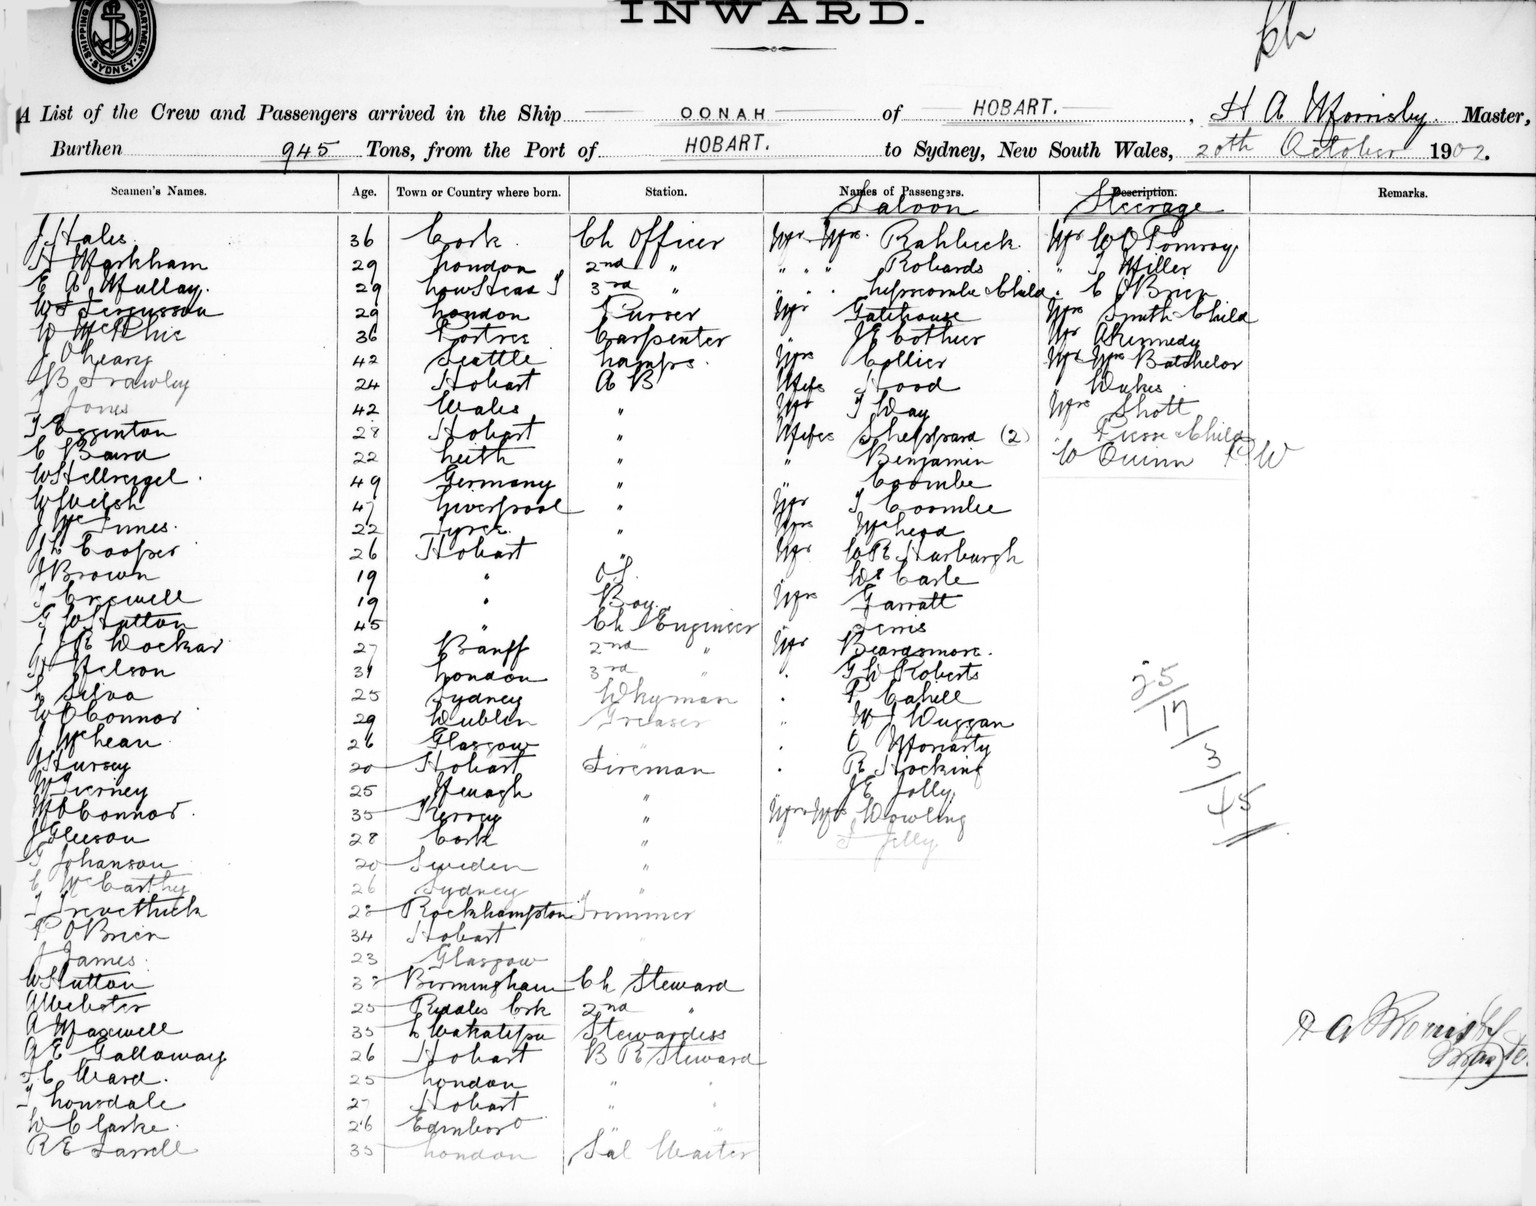 INWARD.
SHIPPING DEPARTMENT SYDNEY
A List of the Crew and Passengers arrived in the Ship OONAH of HOBART. , H A Master,
Burthen 945 Tons, from the Port of HOBART. to Sydney, New South Wales, 20th October 1902.
Seamen's Names. Age. Town or Country where born. Station. Names of Passengers. Description. Remarks.
Saloon Steerage
J Hales 36 Cork Ch Officer Mr Mrs Rahbeck Mr W O Pomroy
H Markham 29 London 2nd " " " " Robards " T Miller
E A Mullay 29 3rd " " " Lipscombe & Child " C O'Brien
W F Fergusson 29 London Purser Mr Gatehouse Mrs Smith & Child
W McPhie 36 Portree Carpenter " J E Cothier Mr A Kennedy
J O'Leary 42 Seattle Lamps. Mrs Collier Mr & Mrs Batchelor
B Frawley 24 Hobart A B Miss Hood Dukes
T Jones 42 Wales " Mr T Way Mrs Shott
T Egginton 28 Hobart " Misses Sheppard (2) " & Child
C Baird 22 Leith " " Benjamin W Quinn P.W
W Hellreigel 49 Germany " " Coombe
W Welsh 47 Liverpool " Mr T Coombe
J McInnes 22 Tyree " Mrs McLeod
J L Cooper 26 Hobart " Mr W R Harburgh
J Brown 19 " O.S. Carle
T Creswell 19 " Boy Mrs Garratt
G W Hutton 45 " Ch Engineer " Ferris
J R Dockar 27 Banff 2nd " Mr Beardsmore
H Nelson 31 London 3rd " " G W Roberts
L Silva 25 Sydney Dkyman " P Cahill
W O'Connor 29 Dublin Greaser " W J Duggan
J McLean 26 Glasgow " " O Moriarty
J Hursey 20 Hobart Fireman " R Hocking
M Tierney 25 Nenagh " J E Jolly
M O'Connor 35 Kerry " Mr & Mrs Dowling
J Gleeson 28 Cork " " T Jelly
T Johanson 20 Sweden "
C McCarthy 26 Sydney "
T Trevethick 28 Rockhampton Trimmer
P O'Brien 34 Hobart "
J James 23 Glasgow
W Hutton 38 Birmingham Ch Steward
A Webster 25 Cork 2nd "
A Maxwell 35 L Wakatipu Stewardess
A E Galloway 26 Hobart B R Steward
T C Ward 25 London " "
T Lonsdale 27 Hobart " "
W Clarke 26 Edinboro " "
R E Farrell 35 London Sal Waiter
25/
17/
3/
45/